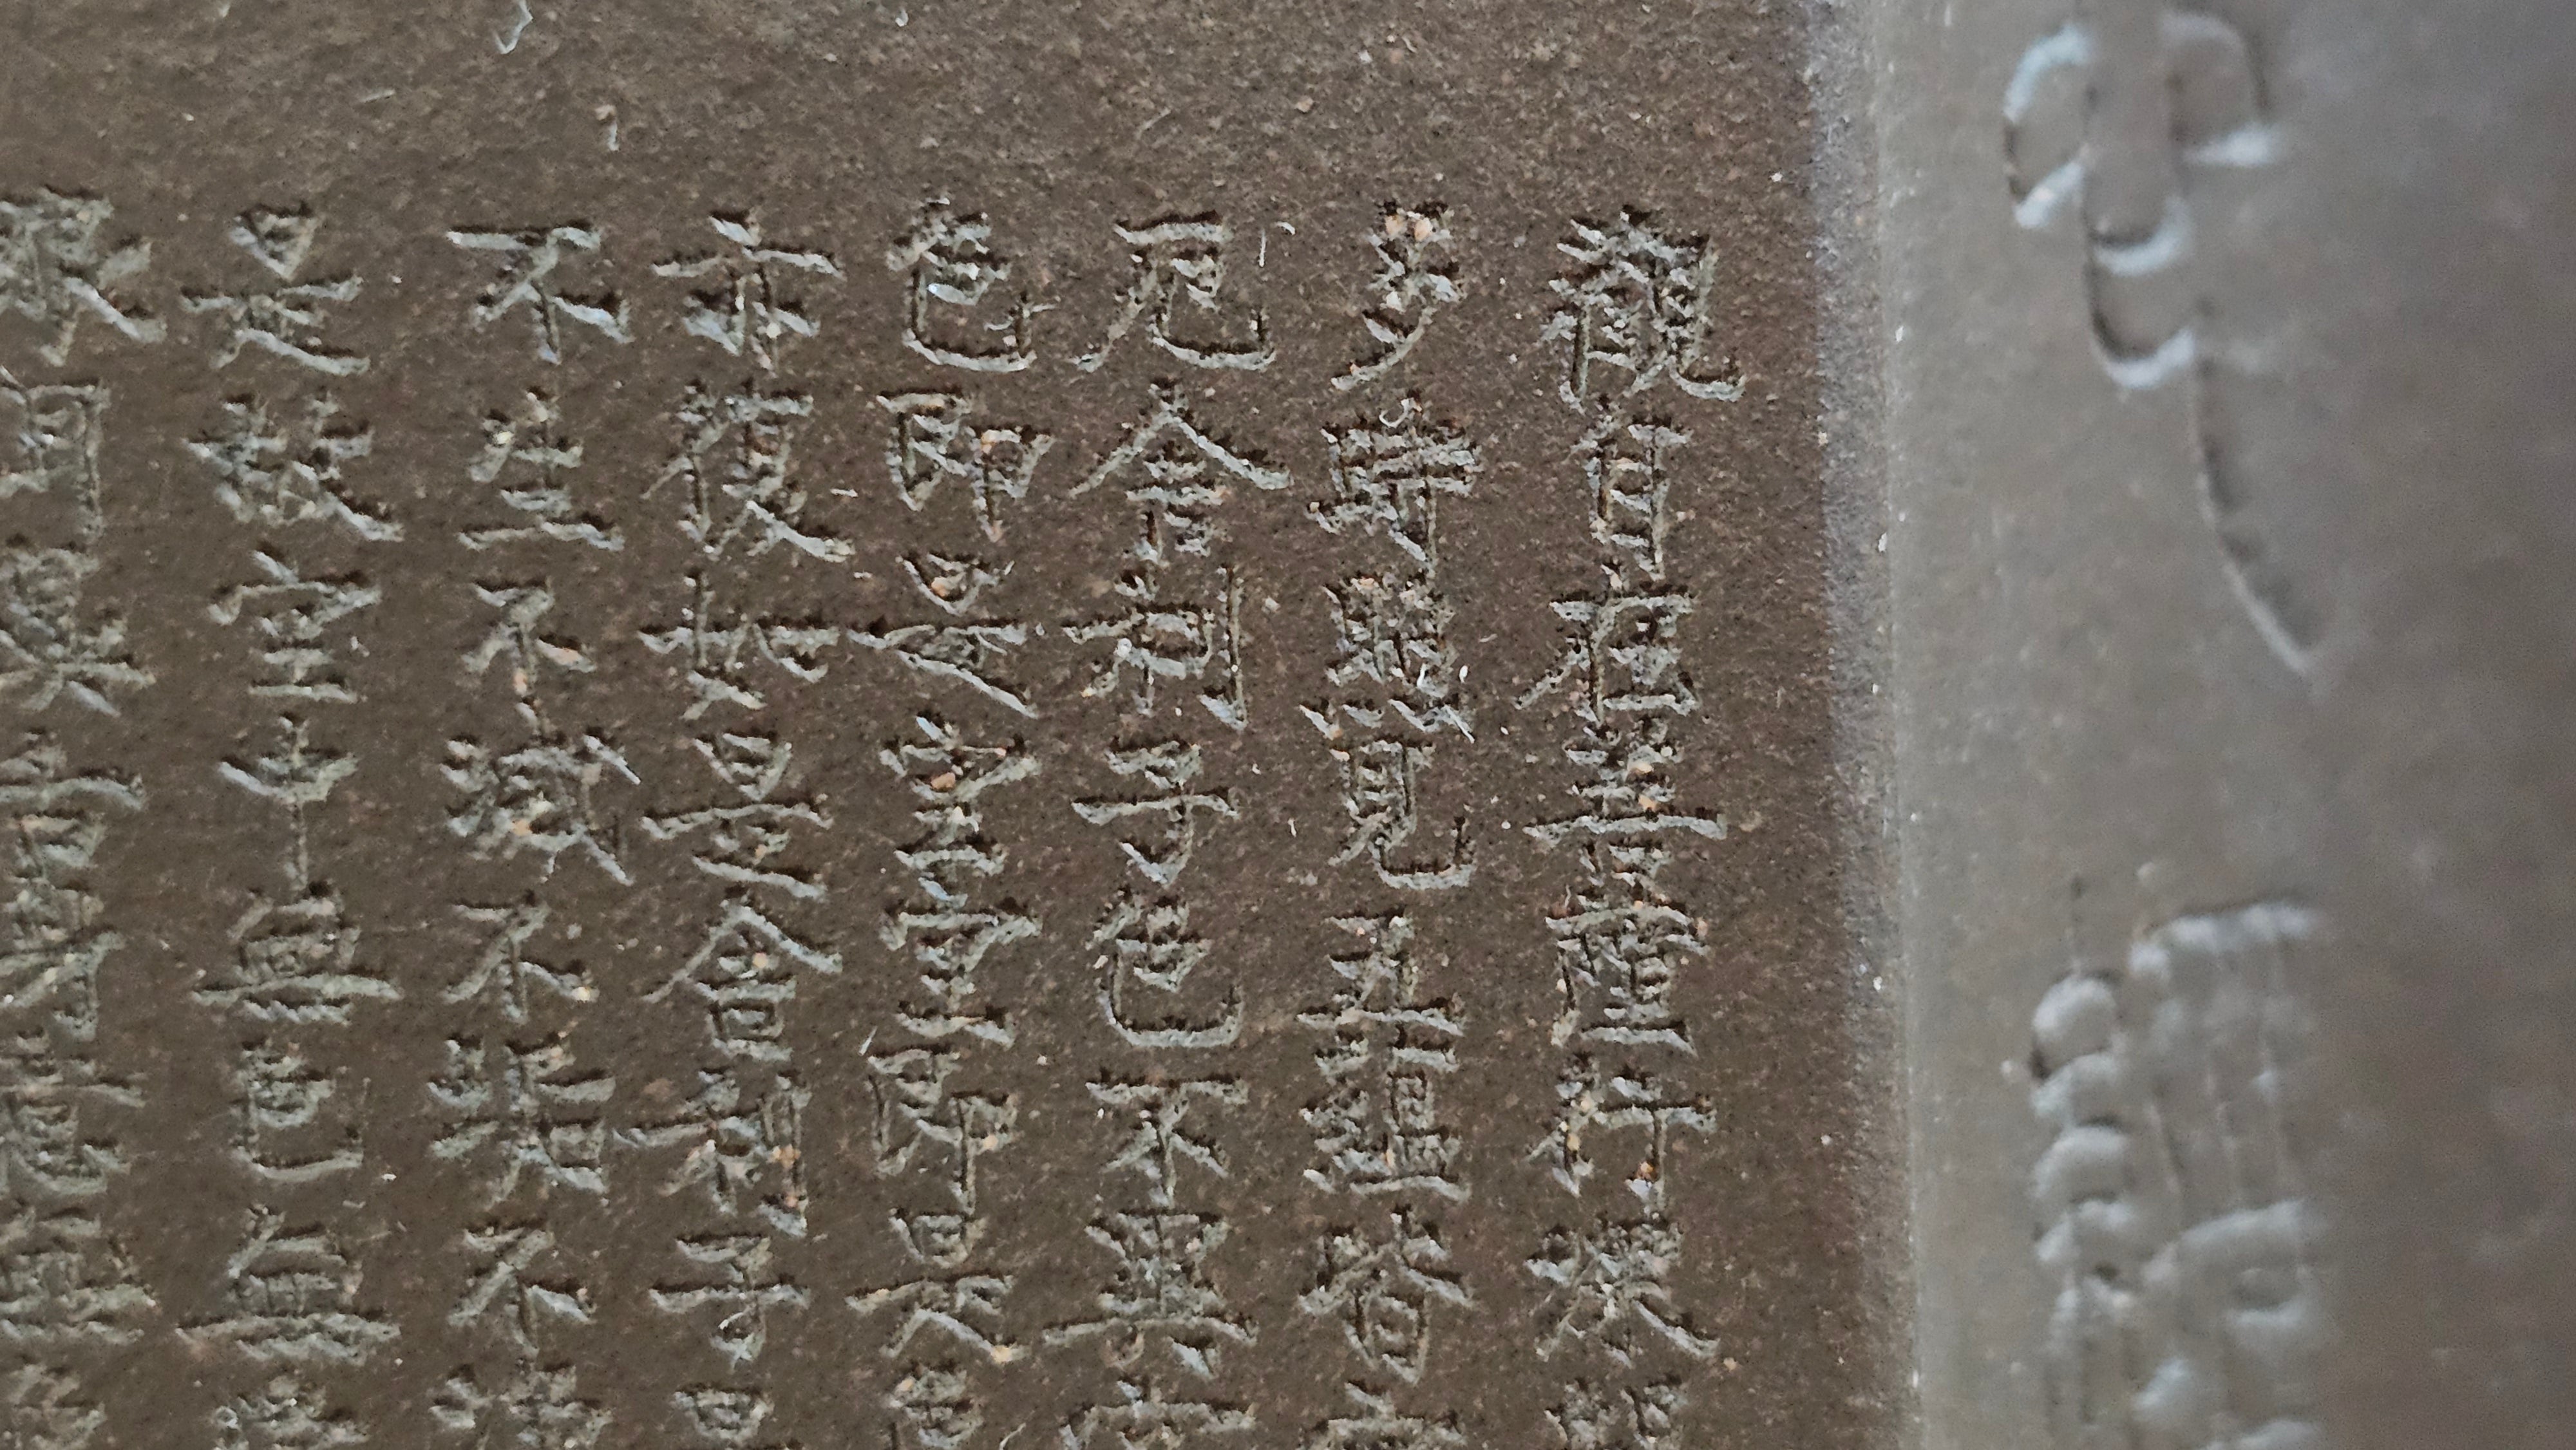 觀自在菩薩行深般
多時照見五蘊皆空
厄舍利子色不異空
色即是空空即是色
亦復如是舍利子是
不生不滅不垢不淨
是故空中無色無受
眼耳鼻舌身意無色